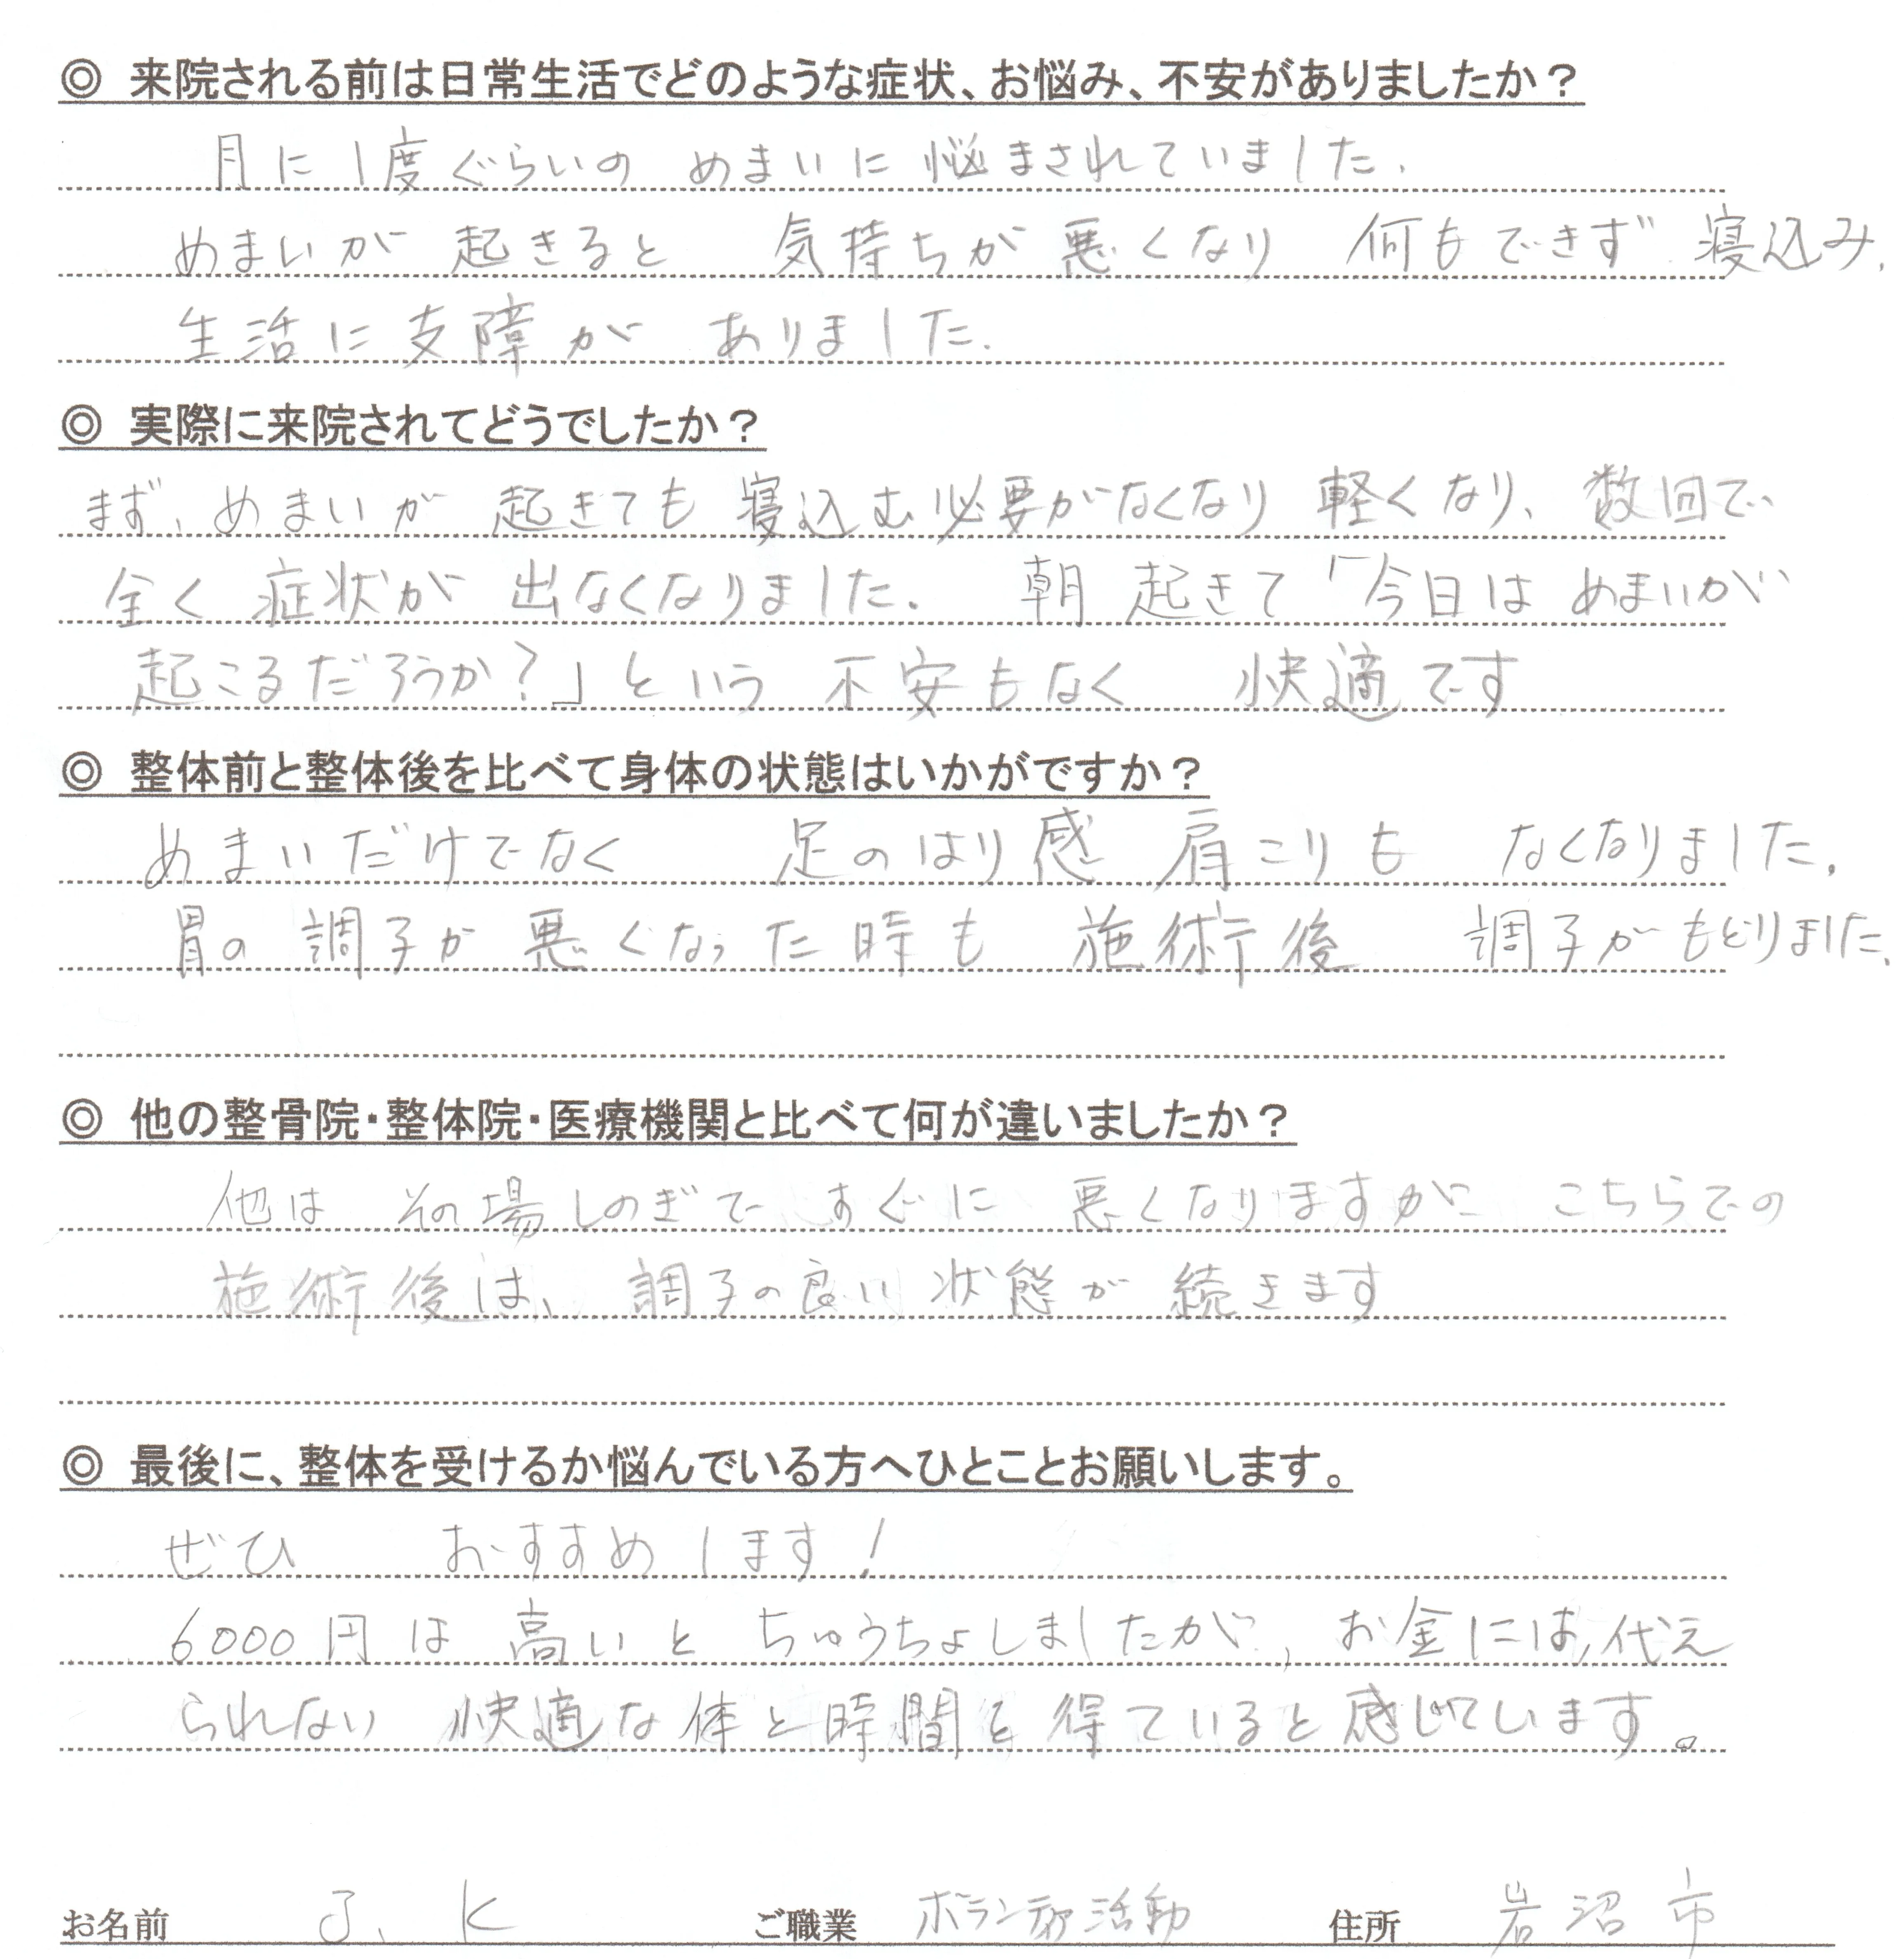 ◎ 来院される前は日常生活でどのような症状、お悩み、不安がありましたか？
月に1度ぐらいの めまいに 悩まされていました.
めまいが 起きると 気持ちが 悪くなり 何もできず 寝込み.
生活に支障が ありました.
◎ 実際に来院されてどうでしたか？
まず、めまいが 起きても 寝込む必要がなくなり 軽くなり、数回で
全く 症状が 出なくなりました. 朝 起きて「今日は めまいが
起こるだろうか?」という 不安もなく 快適です
◎ 整体前と整体後を比べて身体の状態はいかがですか？
めまいだけでなく 足のはり感 肩こりも なくなりました.
胃の 調子が 悪くなった時も 施術後 調子がもどりました.
◎ 他の整骨院・整体院・医療機関と比べて何が違いましたか？
他は その場しのぎで すぐに 悪くなりますが こちらでの
施術後は、調子の良い 状態が 続きます
◎ 最後に、整体を受けるか悩んでいる方へひとことお願いします。
ぜひ おすすめします!
6000円は 高いと ちゅうちょしましたが, お金には,代え
られない 快適な体と時間を 得ていると感じています。
お名前 J. K ご職業 ボランティア活動 住所 岩沼市